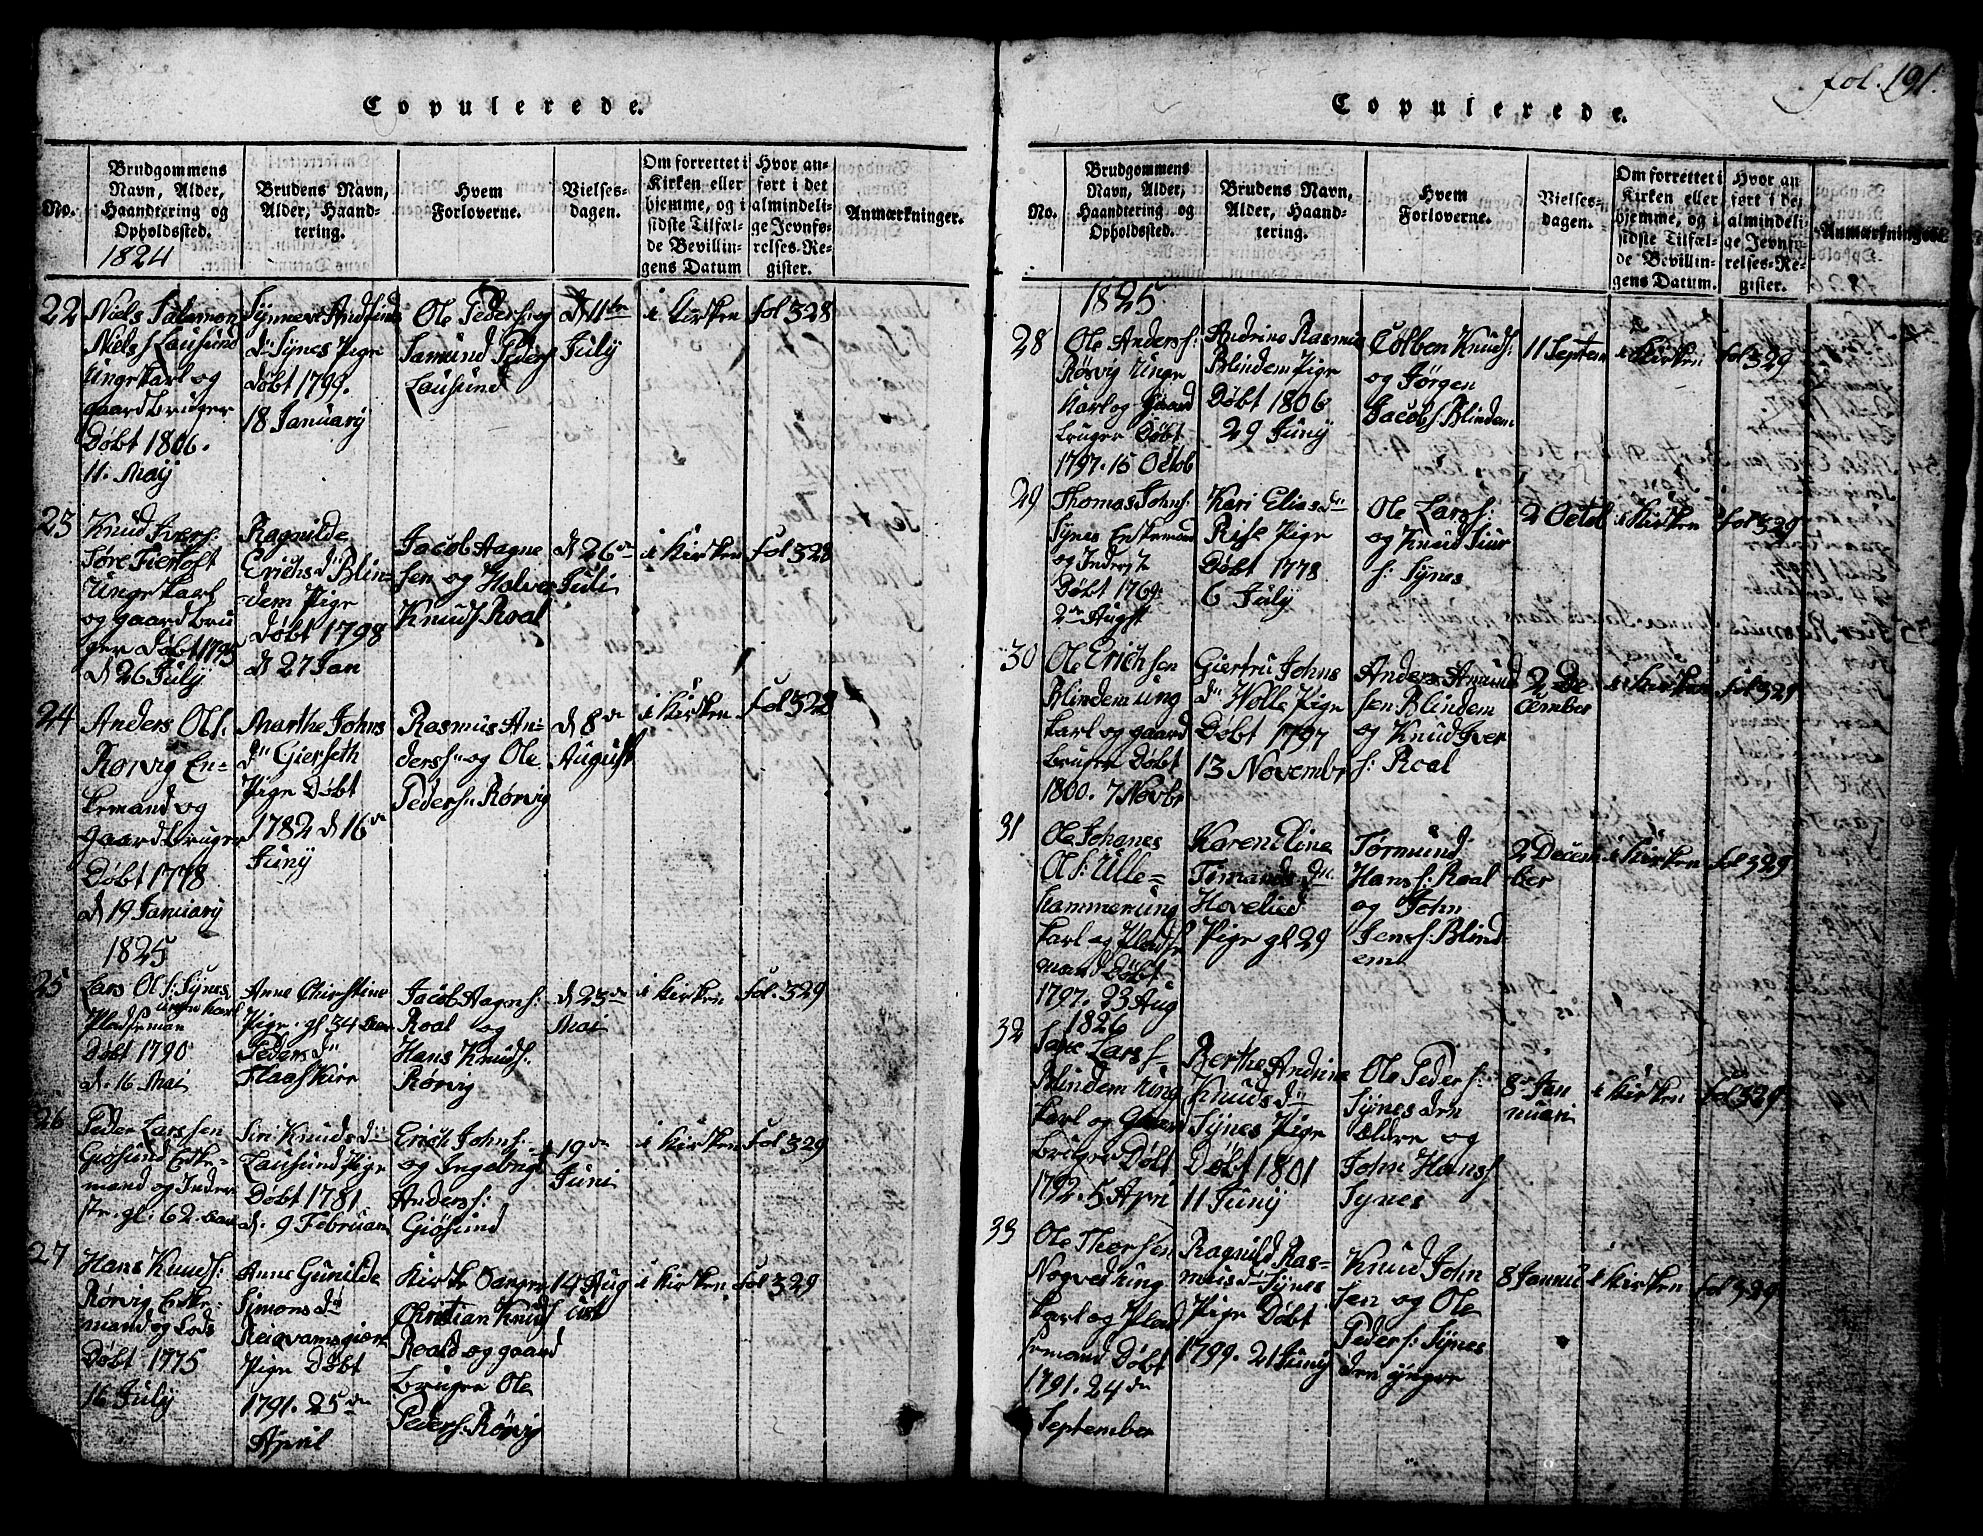 Copulerede.
No.
Brudgommens
Navn, Alder,
Haandtering og
Opholdssted.
Brudens Navn,
Alder, Haand-
tering.
Hvem
Forloverne.
Vielses-
dagen.
Om forrettet i
Kirken eller
hjemme, og i
sidste Tilfæl-
de Bevillin-
gens Datum
Hvor an-
ført i det
almindeli-
ge Jevnfø-
relses-Re-
gister.
Anmærkninger.
1824
22
Niels Salamon
Niels f Lausund
Ungekarl og
gaardbruger
Døbt 1806.
11. Maÿ
Synneve
dr Synes Pige
Døbt 1799.
18 Januarÿ
Ole Peders: og
Samund Peders
Lausund
d 11te
July
i Kirken
fol 328
23
Knud Ivers:
Tøre Fiertoft
Ungekarl
og gaardbru
ger Døbt 1795
d 26 Julÿ
Ragnilde
Erichsdr Blin-
dem Pige
Døbt 1798
d 27 Jan
Jacob Aagne
sen og Halver
Knuds Roal
d 26de
Juli
i Kirken
fol 328
24
Anders Ols.
Rørvig En-
kemand og
gaardbruger
Døbt 1778
d 19 Januarÿ
Marthe Johns
dr Gierseth
Pige Døbt
1782 d 16de
Junÿ
Rasmus An-
ders: og Ole
Peders: Rørvig
d 8de
August
i Kirken
fol 328
1825
25
Lars Ols: Synes
ungekarl
Pladseman
Døbt 1790
d. 16 Mai
Anne Chirestine
Pige. gl 34 aar
Pedersdr
Flaaskier
Jacob Aagens:
Roal og
Hans Knuds:
Rørvig
d 23de
Mai
i Kirken
fol. 329
26
Peder Larssen
Giøsund Enke-
mand og Inder
str. gl. 62. aar
Siri Knudsdr
Lausund Pige
Døbt 1781
d. 9 Februari
Erich Johns:
og Ingebrigt
Anders:
Giøsund
19de
Juni
i Kirken
fol 329
27
Hans Knuds:
Rørvig Enke-
mand og Lods
Døbt 1775
16 Julÿ
Anne Gunilde
Simonsdr
Reiqvamsgiære
Pige Døbt
1791. 25de
April
Kirke Sanger
Christian Knuds
Roald og gaard
bruger Ole
Peders: Rørvig
14 Aug
ust
i Kirken
fol 329
fol. 191.
Copulerede.
No.
Brudgommens
Navn, Alder,
Haandtering og
Opholdssted.
Brudens Navn,
Alder, Haand-
tering.
Hvem
Forloverne.
Vielses-
dagen.
Om forrettet i
Kirken eller
hjemme, og i
sidste Tilfæl-
de Bevillin-
gens Datum.
Hvor an
ført i det
almindeli-
ge Jevnfø-
relses-Re-
gister.
Anmærkninger.
1825.
28
Ole Anders:
Rørvig Unge
karl og Gaard
bruger Døbt
1797. 15 Octob
Andrine Rasmus
Blindem Pige
Døbt 1806
29 Junÿ
Colben Knuds:
og Jørgen
Jacobs: Blindem
11 Septem
i Kirken
fol 329
29
Thomas Johns:
Synes Enkemand
og Inders
Døbt 1769.
2de Augst
Kari Eliasdr
Rise Pige
Døbt 1778
6 July
Ole Lars:
og Knud Siur
s: Synes
2 Octob
i Kirken
fol 329
30
Ole Erichsen
Blindem ung
karl og gaard
bruger Døbt
1800. 7 Novbr
Giertru Johns
dr Wolle Pige
Døbt 1797
13 Novembr
Anders Amund
sen Blindem
og Knud Iver
s: Roal
2 De
cember
i Kirken
fol 329
31
Ole Johanes
Ols: Ulle-
hammer ung
karl og Plads
mand Døbt
1797. 23 Aug
Karen Eline
Hovelied
Pige gl 29
Tormund
Hans s: Roal
og John
Jens s: Blind
em
2 Decem
ber
i Kirken
fol 329
1826
32
Lars f
Blindem Ung
karl og Gaard
bruger Døbt
1792. 5 Apri
Berthe Andrine
Knudsdr
Synes Pige
Døbt 1801
11 Junÿ
Ole Peders:
Synes den
ældre og
John Hans f
Synes
8de Jan
nuari
i Kirken
fol 329
33
Ole Thorsen
Nogved ung
karl og Plad
semand Døbt
1791. 24de
September
Ragnild Ras-
musdr Synes
Pige Døbt
1799. 21 Junÿ
Knud John
sen og Ole
Peders: Synes
den yngre
8 Januri
i Kirken
fol 329